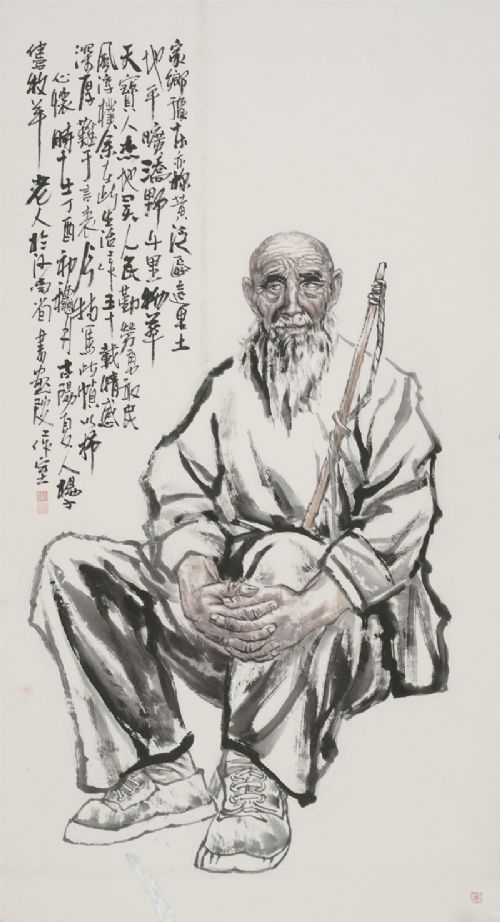 家鄉豫东亦稱黄泛區這里土
地平曠野千里物華
天寶人杰地灵人民勤勞勇敢民
風淳樸余在此生活五十載情感
深厚難于言表特寫此幀以抒
心懷時丁酉初秋月古陽夏人楊子
牧羊老人於河南省書畫院工作室